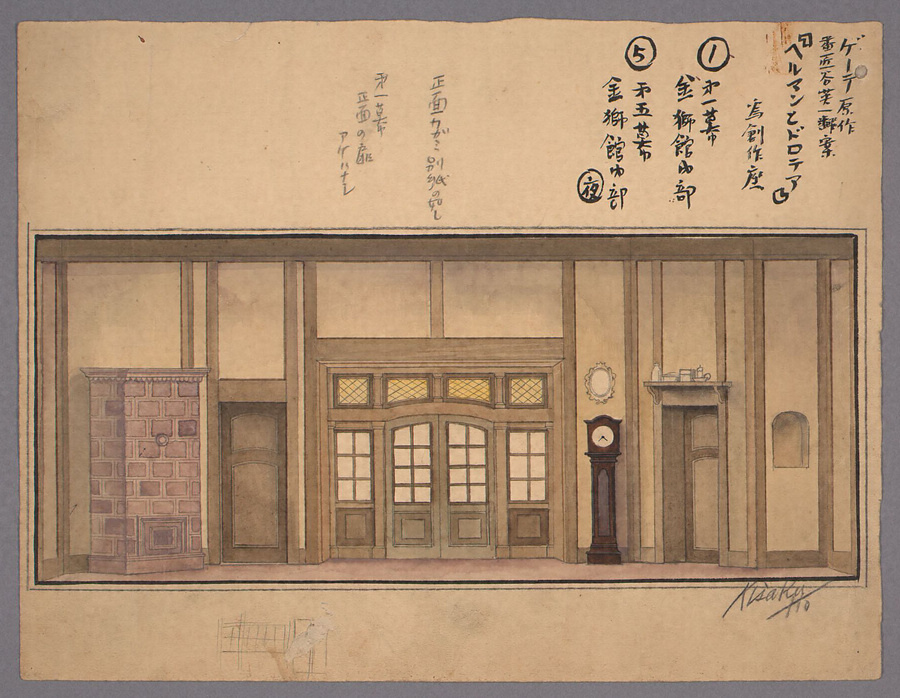 ゲーテ 原作
番匠谷英一 翻案
「ヘルマンとドロテア」
為創作座
① 第一幕
金獅館内部
⑤ 第五幕
金獅館内部 夜
正面カガミ別紙の如し
第一幕
正面の扉
アケハナし
Kisaku